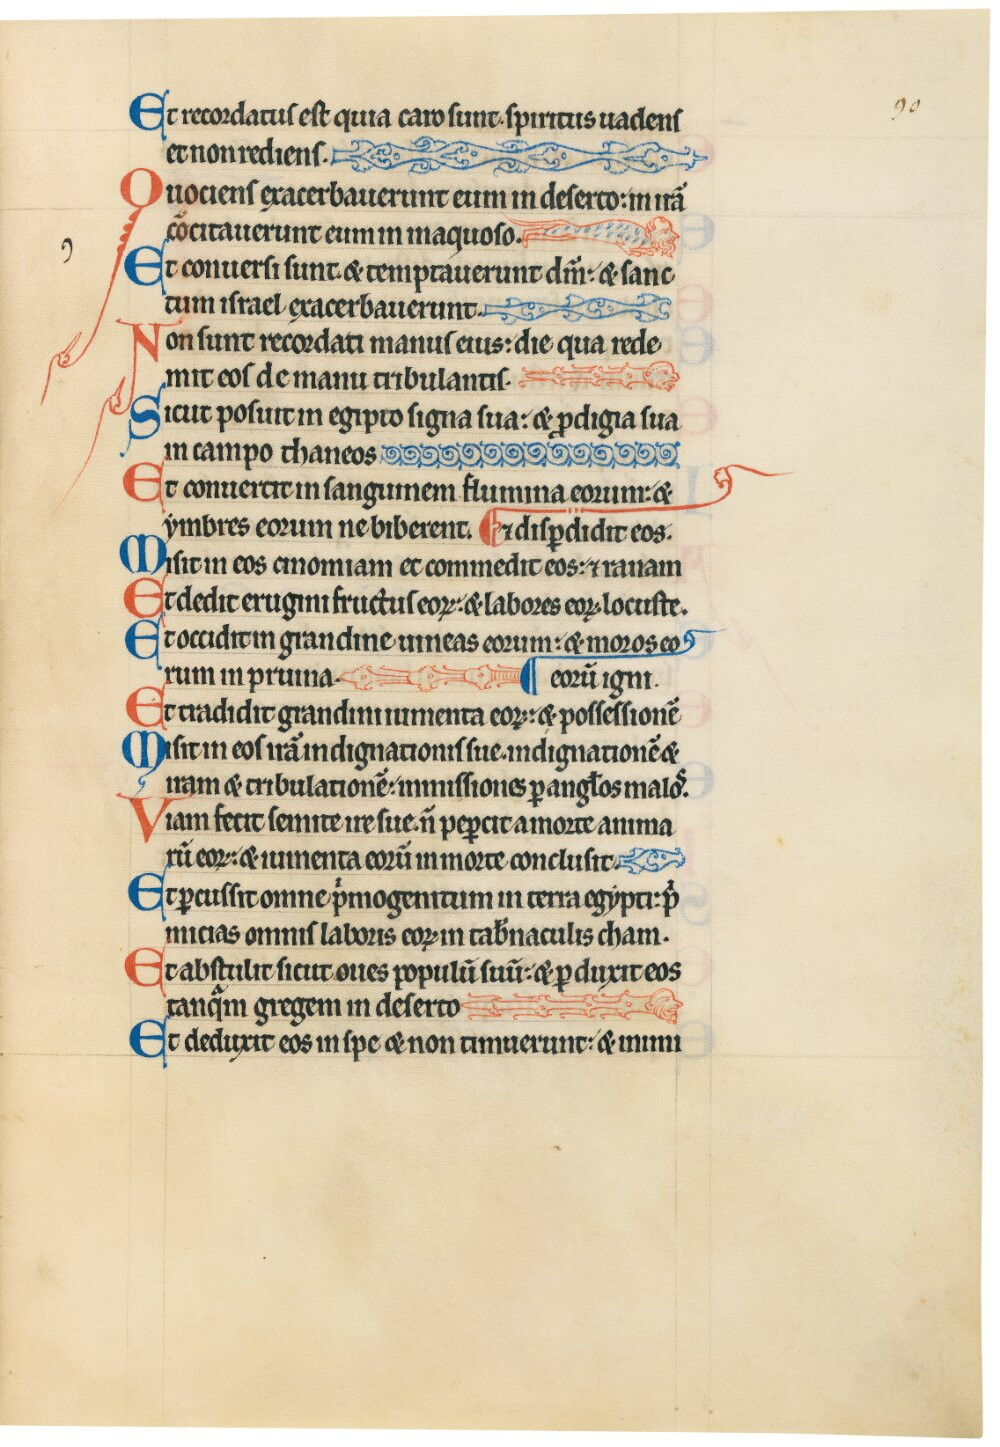 90
Et recordatus est quia caro sunt· spiritus uadens
et non rediens.
Quociens exacerbauerunt eum in deserto: in irã
cõcitauerunt eum in inaquoso.
9
Et conuersi sunt. & temptauerunt dm̃: & sanc
tum israel exacerbauerunt.
Non sunt recordati manus eius: die qua rede
mit eos de manu tribulantis.
Sicut posuit in egipto signa sua: & ꝓdigia sua
in campo thaneos
Et conuertit in sanguinem flumina eorum: &
ymbres eorum ne biberent. Et disꝑdidit eos.
Misit in eos cinomiam et commedit eos: ⁊ ranam
Et dedit erugini fructus eoꝝ: & labores eoꝝ locuste.
Et occidit in grandine uineas eorum: & moros eo
rum in pruina. eorũ igni.
Et tradidit grandini iumenta eoꝝ: & possessionẽ
Misit in eos irã indignationis sue. indignationẽ &
iram & tribulationẽ: inmissiones ꝑ angl̃os maloꝝ.
Viam fecit semite ire sue. ñ pepercit a morte anima
rũ eoꝝ: & iumenta eorũ in morte conclusit.
Et ꝑcussit omne pͥmogenitum in terra egypti: pͥ
micias omnis laboris eoꝝ in tab̃naculis cham.
Et abstulit sicut oues populũ suũ: & ꝑduxit eos
tanqͣm gregem in deserto
Et deduxit eos in spe & non timuerunt: & inimi